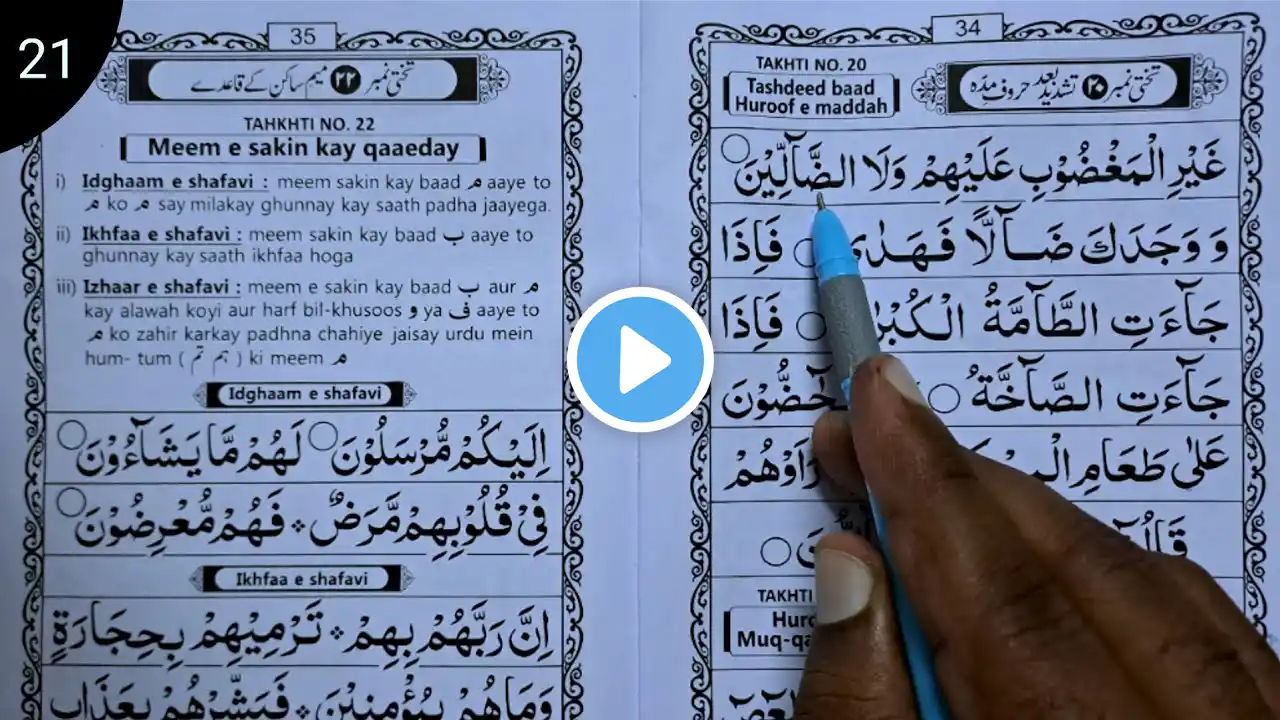 21
35
تختی نمبر ۲۲ میم ساکن کے قاعدے
TAHKHTI NO. 22
Meem e sakin kay qaaeday
i) Idghaam e shafavi : meem sakin kay baad م aaye to
م ko م say milakay ghunnay kay saath padha jaayega.
ii) Ikhfaa e shafavi : meem sakin kay baad ب aaye to
ghunnay kay saath ikhfaa hoga
iii) Izhaar e shafavi : meem e sakin kay baad ب aur م
kay alawah koyi aur harf bil-khusoos و ya ف aaye to
م ko zahir karkay padhna chahiye jaisay urdu mein
hum- tum ( ہم تم ) ki meem م
Idghaam e shafavi
اِلَيْكُمْ مُّرْسَلُوْنَ ○ لَهُمْ مَّا يَشَآءُوْنَ ○
فِيْ قُلُوْبِهِمْ مَّرَضٌ ۞ فَهُمْ مُّعْرِضُوْنَ ○
Ikhfaa e shafavi
اِنَّ رَبَّهُمْ بِهِمْ ۞ تَرْمِيْهِمْ بِحِجَارَةٍ
وَمَا هُمْ بِمُؤْمِنِيْنَ ۞ فَبَشِّرْهُمْ بِعَذَابٍ
34
TAKHTI NO. 20
Tashdeed baad
Huroof e maddah
تختی نمبر ۲۰ تشدید بعد حروف مدّہ
غَيْرِ الْمَغْضُوْبِ عَلَيْهِمْ وَلَا الضَّآلِّيْنَ ○
وَ وَجَدَكَ ضَآلًّا فَهَدٰى ○ فَاِذَا
جَآءَتِ الطَّآمَّةُ الْكُبْرٰ ○ فَاِذَا
جَآءَتِ الصَّآخَّةُ ○
عَلٰى طَعَامِ
قَالُ
TAKHTI
Muq-qa